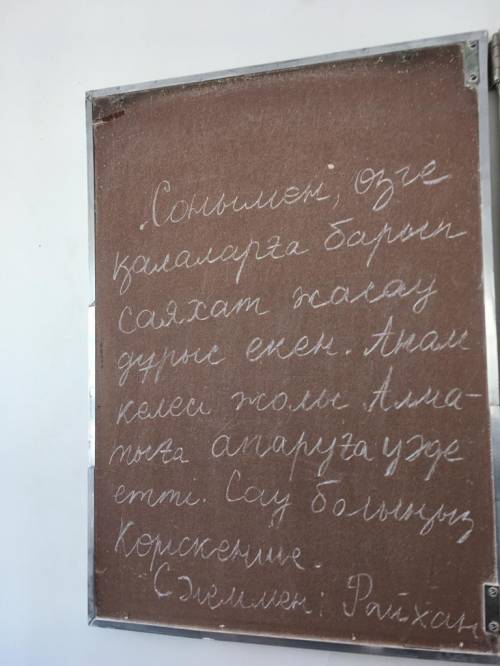 Сонымен, өзге
қалаларға барып
саяхат жасау
дұрыс екен. Анам
келесі жолы Алма-
тыға апаруға уәде
етті. Сау болыңыз
Көріскенше.
Сәлеммен: Райхан